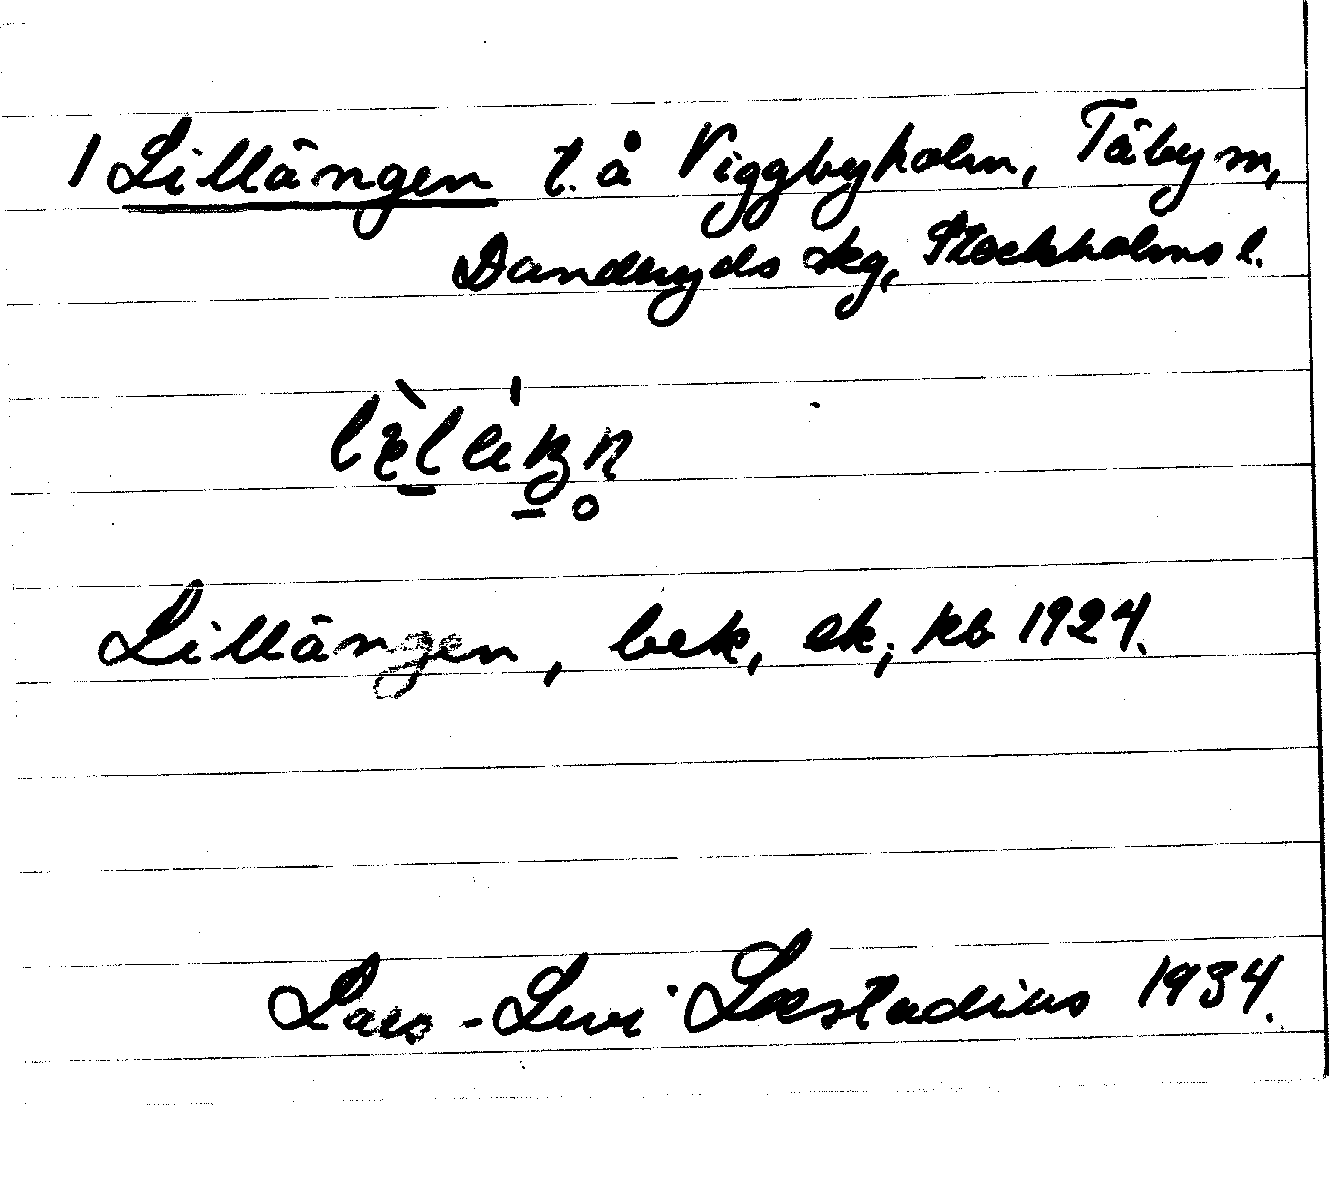 1 Lillängen t. å Viggbyholm, Täby sn,
Danderyds skg, Stockholms l.
Lillängen, bek, ek; kb 1924.
Lars-Levi Læstadius 1934.